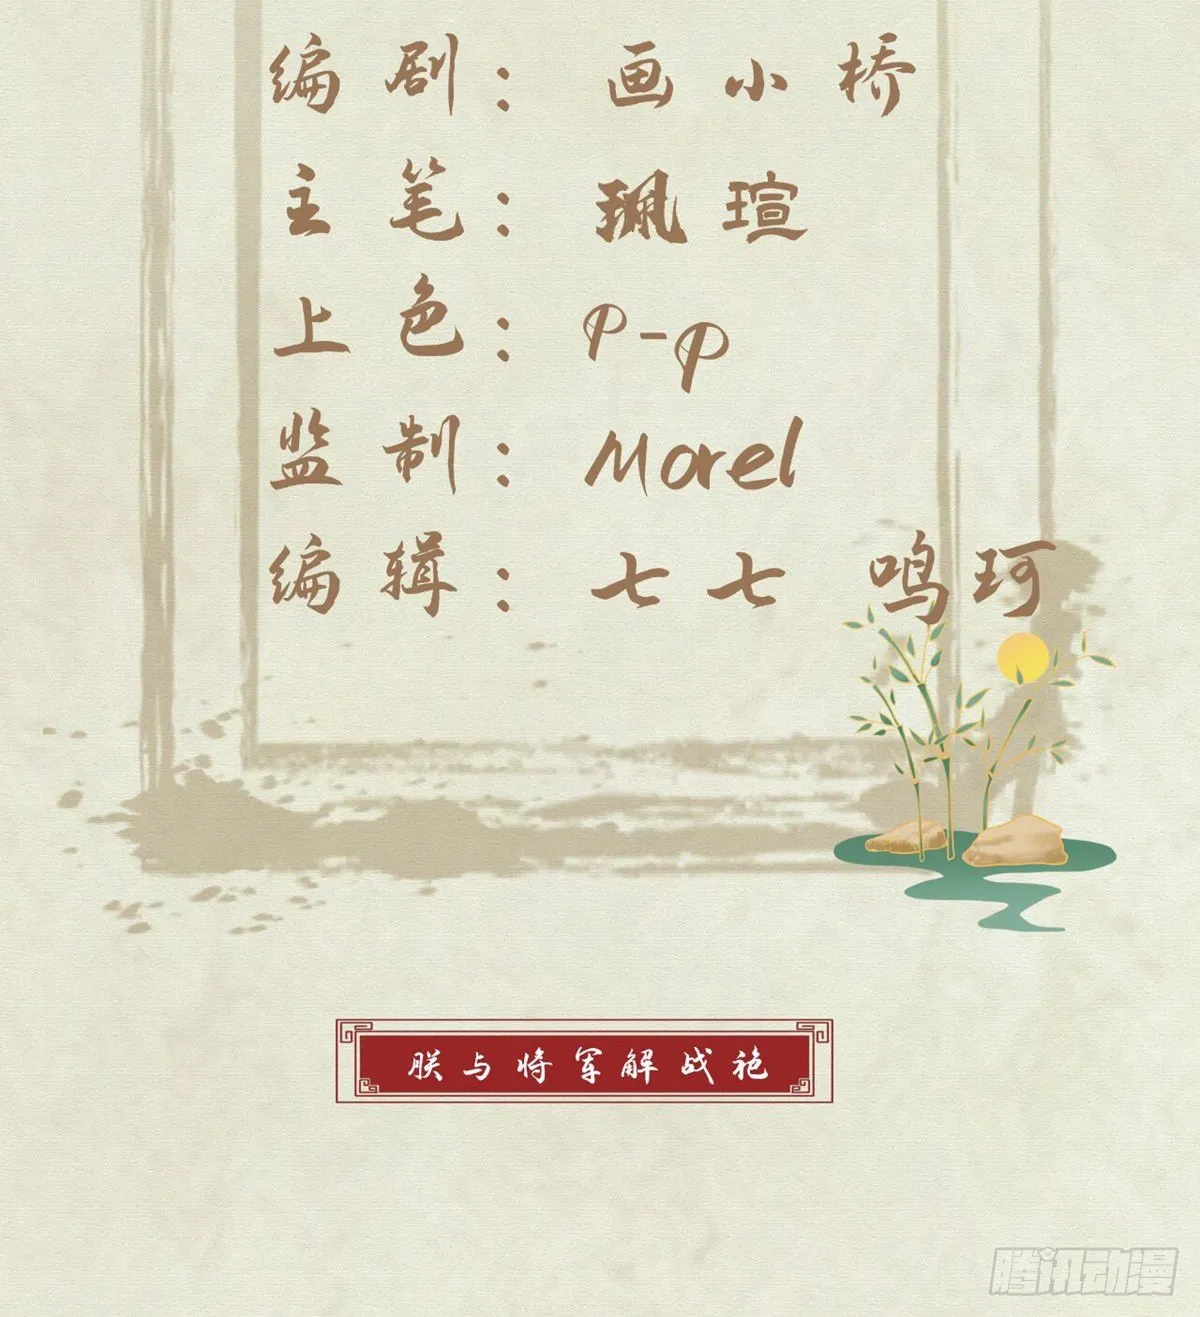 编剧：画小桥
主笔：珮瑄
上色：P-P
监制：Morel
编辑：七七 鸣珂
朕与将军解战袍
腾讯动漫